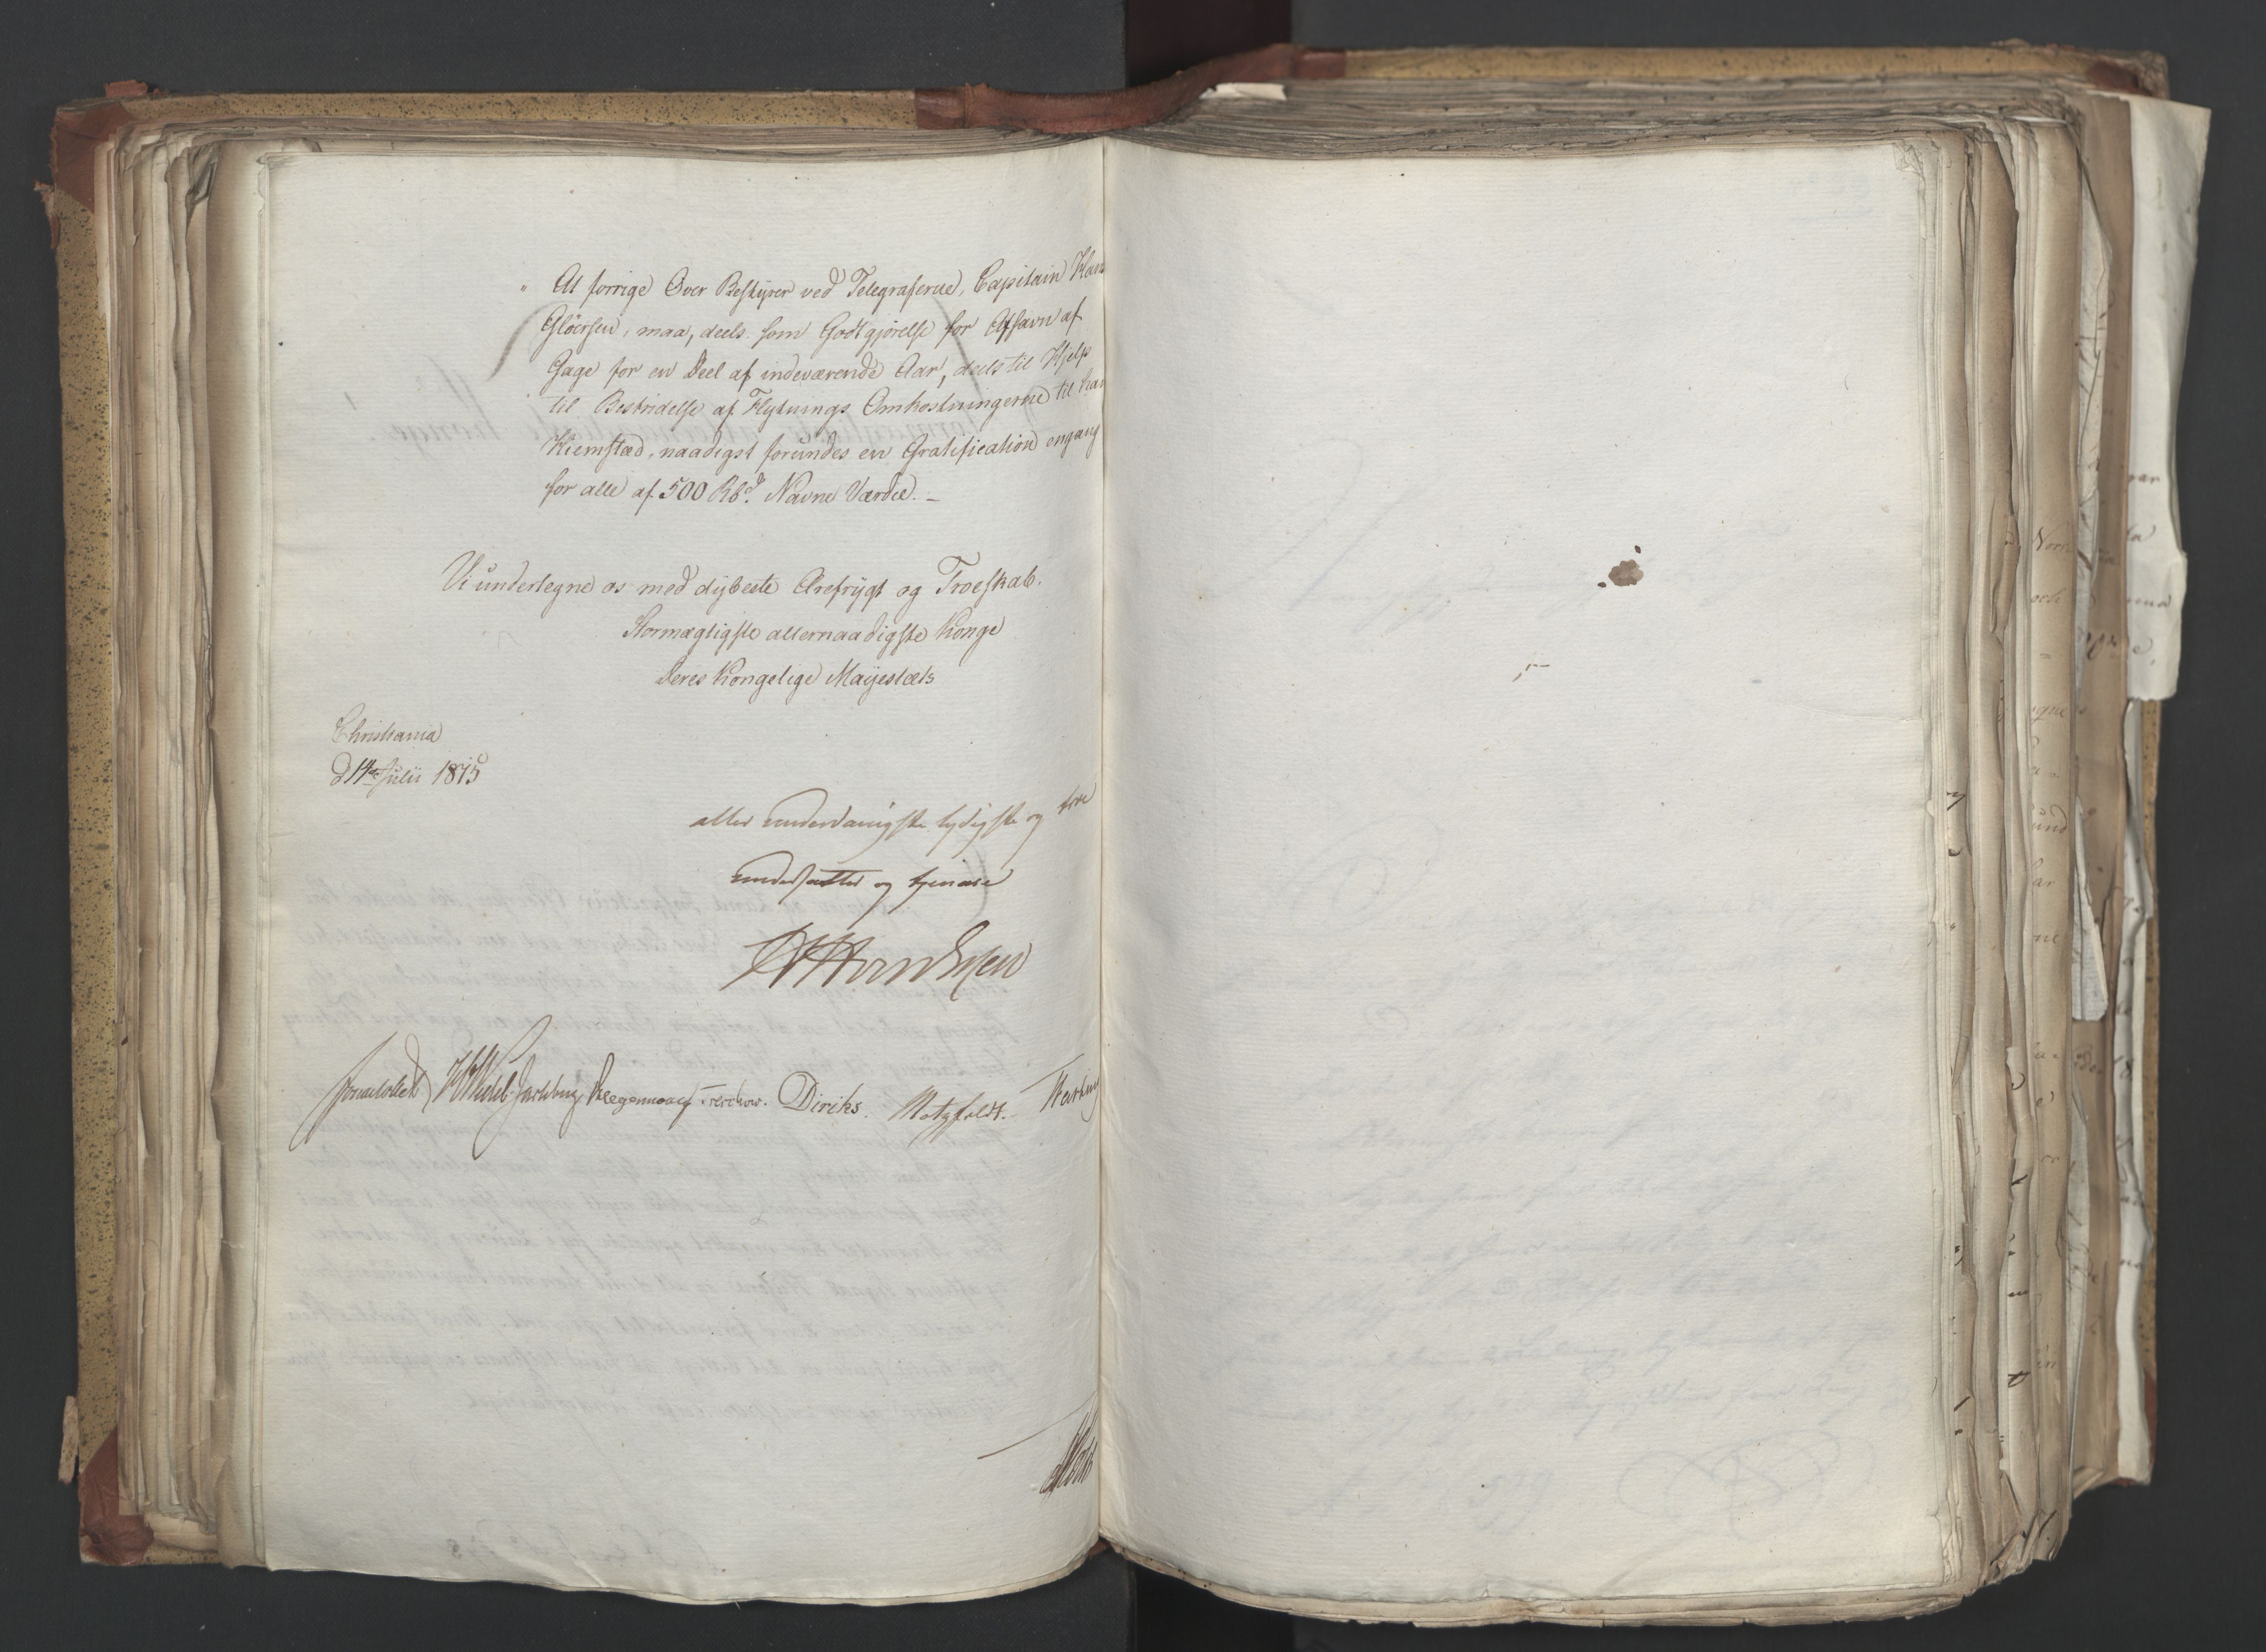 " At forrige Over Bestyrer ved Telegraferne, Capitain
Gløersen, maa, deels som Godtgjørelse for Afsavn af
Gage for en Deel af indeværende Aar, deels til Hjelp
til Bestridelse af Flytnings Omkostningerne til
Hiemsted, naadigst forundes en Gratification engang
for alle af 500 Rbd. Navne Værdie. –
Vi undertegne os med dybeste Ærefrygt og Troeskab.
Stormægtigste allernaadigste Konge
Deres Kongelige Mayestæts
Christiania
d 14de Julii 1815
aller underdanigste lydigste og troe
undersatter og tjenere
Sommerhielm HWedel-Jarlsberg Krog Treschow. Diriks. Motzfeldt.